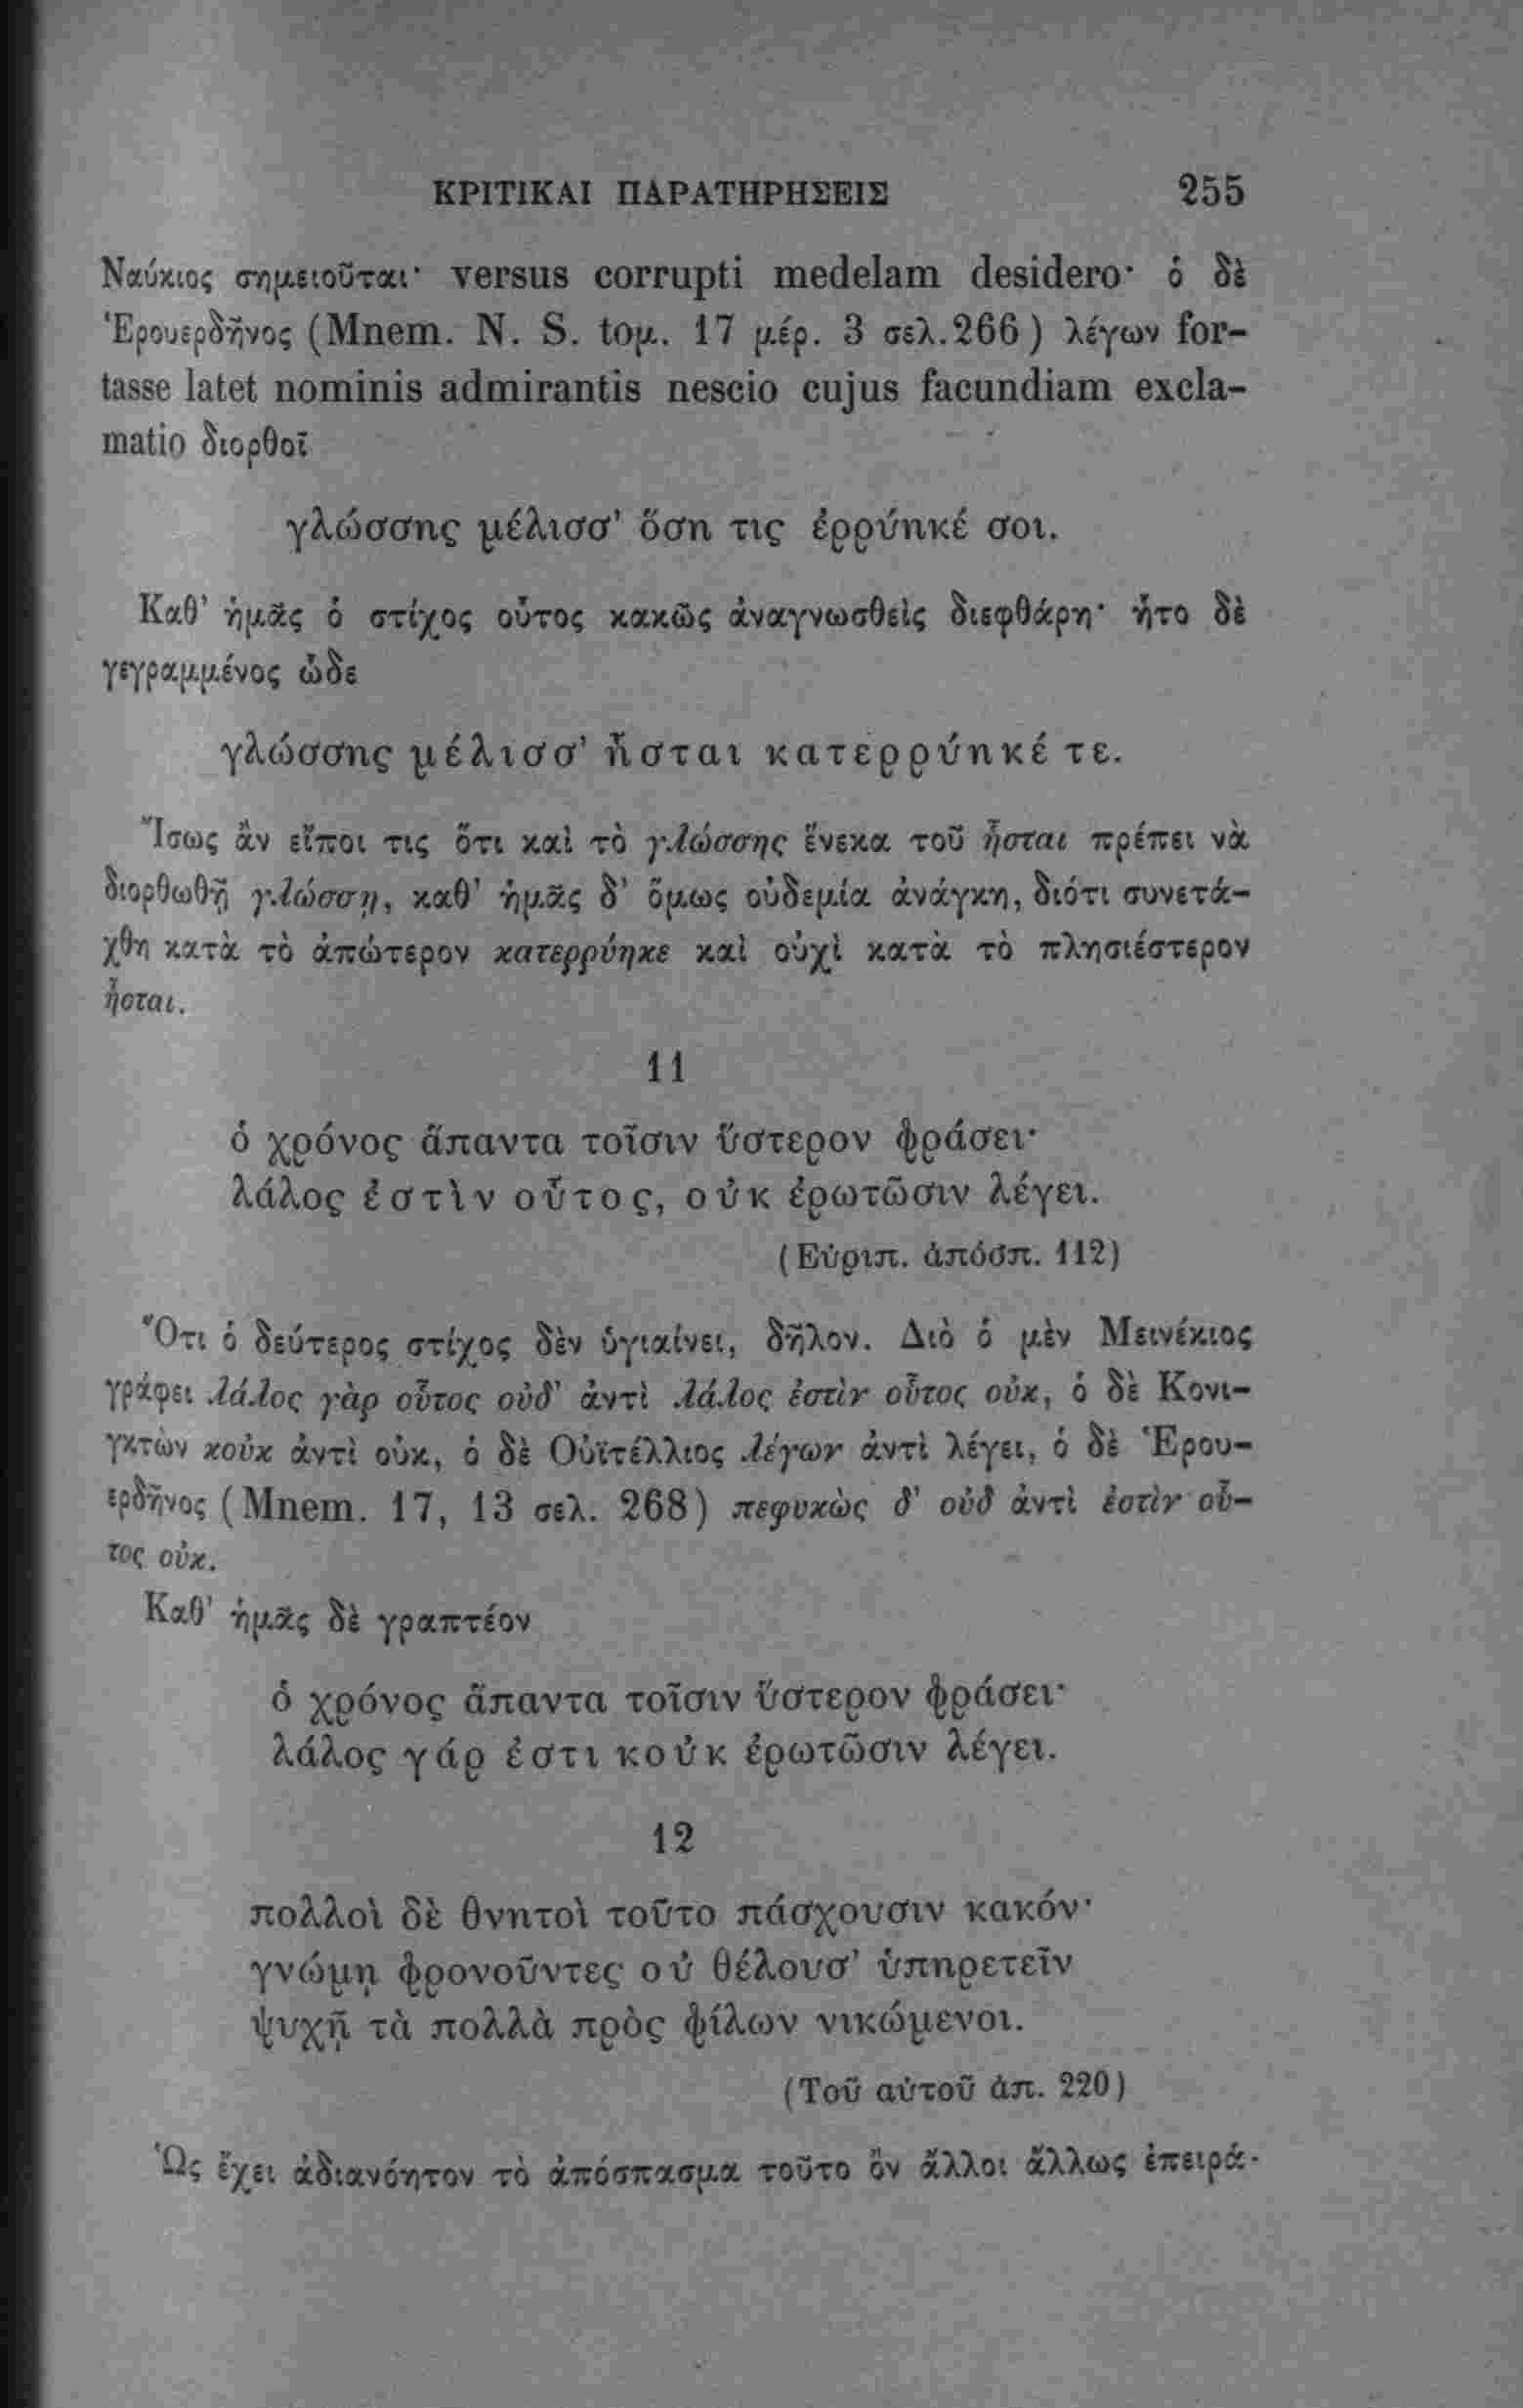 ΚΡΙΤΙΚΑΙ ΠΑΡΑΤΗΡΗΣΕΙΣ 255
Ναύκιος σημειοῦται· versus corrupti medelam desidero· ὁ δὲ
Ἑρουερδῆνος (Mnem. N. S. τομ. 17 μέρ. 3 σελ.266) λέγων for-
tasse latet nominis admirantis nescio cujus facundiam excla-
matio διορθοῖ
γλώσσης μέλισσ’ ὅση τις ἐρρύηκέ σοι.
Καθ’ ἡμᾶς ὁ στίχος οὗτος κακῶς ἀναγνωσθεὶς διεφθάρη· ἦτο δὲ
γεγραμμένος ὧδε
γλώσσης μέλισσ’ ἧσται κατερρύηκέ τε.
Ἴσως ἂν εἴποι τις ὅτι καὶ τὸ γλώσσης ἕνεκα τοῦ ἧσται πρέπει νὰ
διορθωθῇ γλώσσῃ, καθ’ ἡμᾶς δ’ ὅμως οὐδεμία ἀνάγκη, διότι συνετά-
χθη κατὰ τὸ ἀπώτερον κατερρύηκε καὶ οὐχὶ κατὰ τὸ πλησιέστερον
ἧσται.
11
ὁ χρόνος ἅπαντα τοῖσιν ὕστερον φράσει·
λάλος ἐστὶν οὗτος, οὐκ ἐρωτῶσιν λέγει.
(Εὐριπ. ἀπόσπ. 112)
Ὅτι ὁ δεύτερος στίχος δὲν ὑγιαίνει, δῆλον. Διὸ ὁ μὲν Μεινέκιος
γράφει λάλος γὰρ οὗτος οὐδ’ ἀντὶ λάλος ἐστὶν οὗτος οὐκ, ὁ δὲ Κονι-
γκτὼν κοὐκ ἀντὶ οὐκ, ὁ δὲ Οὐϊτέλλιος λέγων ἀντὶ λέγει, ὁ δὲ Ἑρου-
ερδῆνος (Mnem. 17, 13 σελ. 268) πεφυκὼς δ’ οὐδ ἀντὶ ἐστὶν οὗ-
τος οὐκ.
Καθ’ ἡμᾶς δὲ γραπτέον
ὁ χρόνος ἅπαντα τοῖσιν ὕστερον φράσει·
λάλος γάρ ἐστι κοὐκ ἐρωτῶσιν λέγει.
12
πολλοὶ δὲ θνητοὶ τοῦτο πάσχουσιν κακόν·
γνώμῃ φρονοῦντες οὐ θέλουσ’ ὑπηρετεῖν
ψυχῇ τὰ πολλὰ πρὸς φίλων νικώμενοι.
(Τοῦ αὐτοῦ ἀπ. 220)
Ὡς ἔχει ἀδιανόητον τὸ ἀπόσπασμα τοῦτο ὂν ἄλλοι ἄλλως ἐπειρά-